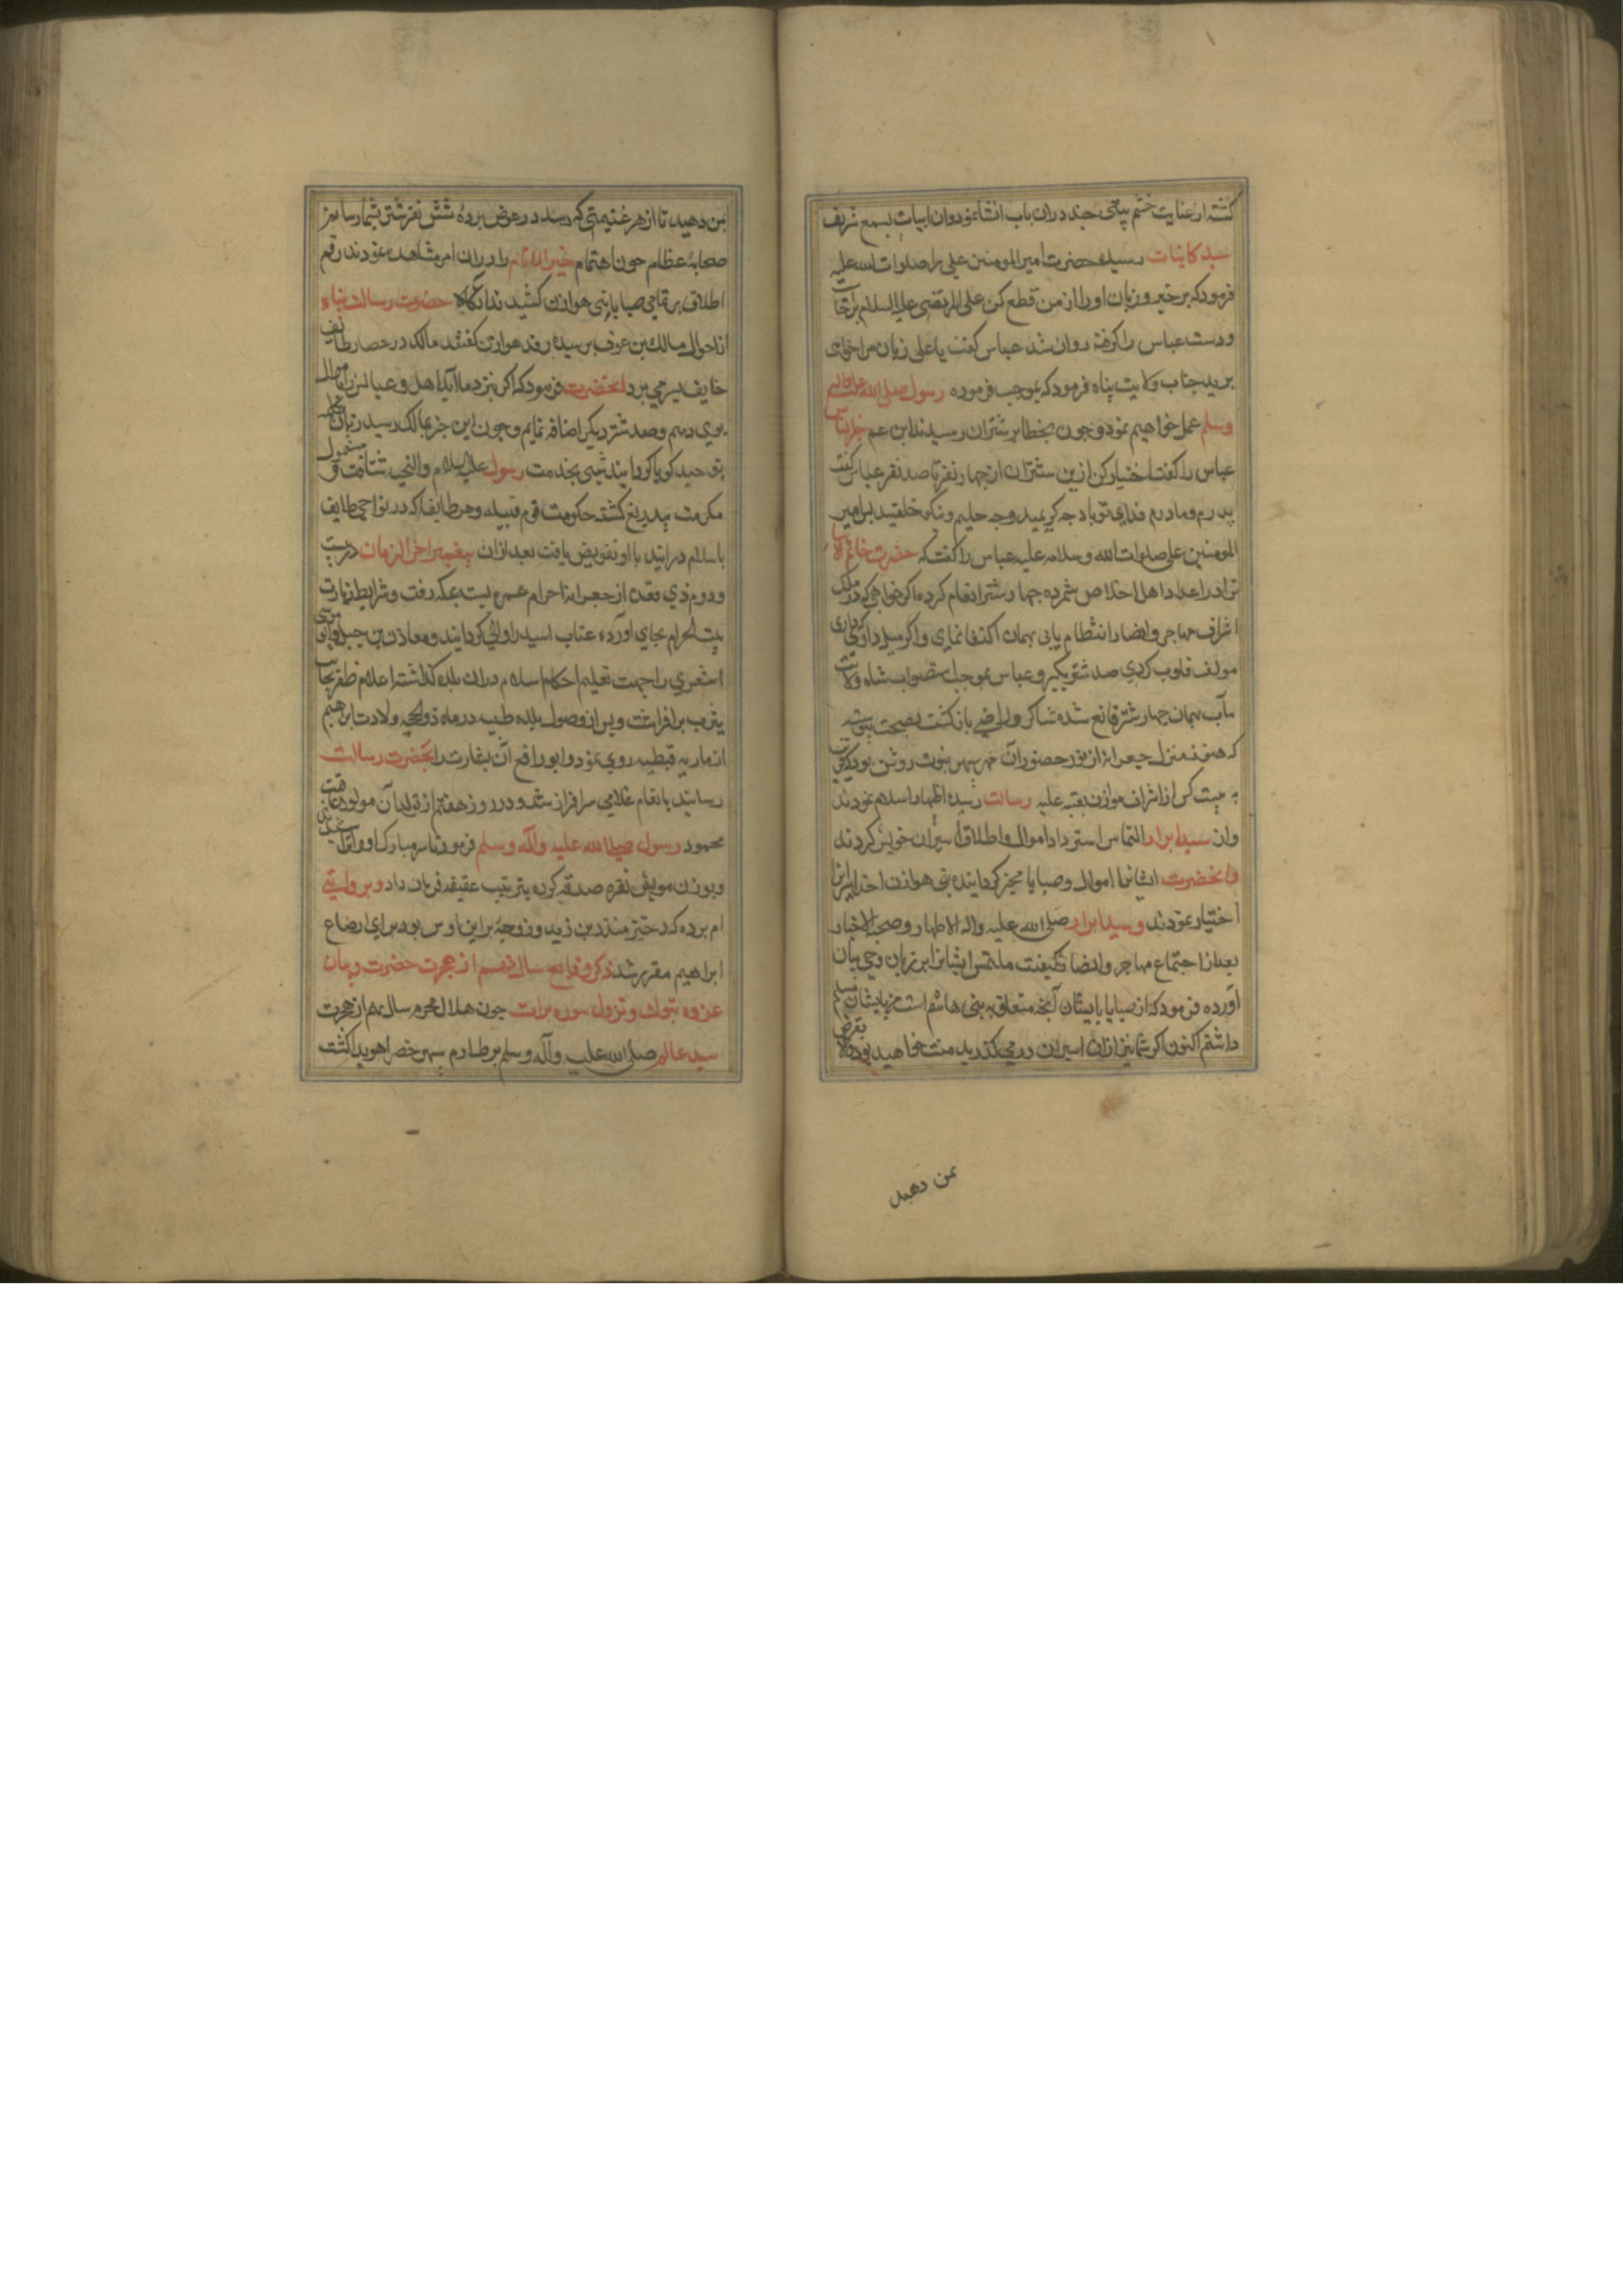 کشته از غایت خشم بیتی چند دران باب انشاء نمود وان ابیات بسمع شریف
سید کاینات رسیده حضرت امیر المومنین علی را صلوات الله علیه
فرمود که برخیز و زبان او را از من قطع کن علی المرتضی علیه السلام برخاست
ودست عباس را کرفته روان شد عباس کفت یا علی زبان مرا خواهی
برید جناب ولایت پناه فرمود که بموجب فرموده رسول صلی الله علیه واله
وسلم عمل خواهیم نمود وجون بحظایر شتران رسیدند ابن عم خیر الناس
عباس را کفت اختیار کن ازین شتران از جهار نفر تا صد نفر عباس کفت
پدرم ومادرم فدای تو باد جه کریمید وجه حلیم ونیکو خلقید بس امیر
المومنین علی صلوات الله وسلامه علیه عباس را کفت که حضرت خاتم الانبیا
ترا در اعداد اهل اخلاص شمرده جهار شتر انعام کرده اکر خواهی که در سلک
اشراف مهاجر وانصار انتظام یابی بهمان اکتفا نمای واکر میل داری که
مولف قلوب کردی صد شتر بکیر وعباس بموجب استصواب شاه ولایت
مآب بهمان جهار شتر قانع شده شاکر وراضی بازکشت بصحت پیوسته
که هنوز منزل جعرانه از نور حضور آن مهر سپهر نبوت روشن بود که قرب
بیست کس از اشراف هوازن بعتبه علیه رسالت رسیده اظهار اسلام نمودند
وان سید ابرار التماس استرداد اموال واطلاق اسیران خویش کردند
وانحضرت ایشانرا اموال وصبایا مخیر کردانیده بنی هوازن اخذ اسیران
اختیار نمودند وسید ابرار صلی الله علیه واله الاطهار وصحبه الاخیار
بعد از اجتماع مهاجر وانصار کیفیت ملتمس ایشانرا بر زبان وحی بیان
آورده فرمود که از صبایا بایشان آنجه متعلق به بنی هاشم است من بایشان مسلم
داشتم اکنون اکر شما نیز ازان اسیران درمی کذرید منت خواهید بود والا بقرض
بمن دهید
بمن دهید تا از هر غنیمتی که رسد در عوض برده شش نفر شتر بشما رسانم
صحابه عظام جون اهتمام خیر الانام را دران امر مشاهده نمودند رقم
اطلاق بر تمامی صبایا بنی هوازن کشیدند انکاه حضرت رسالت پناه
از احوال مالک بن عوف پرسیده وفد هوازن کفتند مالک در حصار طایف
خایف بسر می برد انحضرت فرمود که اکر بنزد ما اید اهل وعیالش را با مال
بوی دهم وصد شتر دیکر اضافه نمایم وجون این خبر بمالک رسید زبان بکلمه
توحید کویا کردانیده شبی بخدمت رسول علیه السلام والتحیه شتافت ومشمول
مکرمت بیدریغ کشته حکومت قوم قبیله وهر طایفه که در نواحی طایف
باسلام درایند با او تفویض یافت بعد ازان پیغمبر اخر الزمان در بیست
ودوم ذی قعده از جعرانه احرام عمره بسته بمکه رفت وشرایط زیارت
بیت الحرام بجای آورده عتاب اسید را والی کردانید ومعاذ بن جبل وابو موسی
اشعری را جهت تعلیم احکام اسلام دران بلده کذاشته اعلام ظفر بجانب
یثرب برافراشت وپس از وصول بلده طیبه در ماه ذو الحجه ولادت ابرهیم
از ماریه قبطیه روی نمود وابو رافع آن بشارت را بحضرت رسالت
رسانید بانعام غلامی سرافراز شد ودر روز هفتم از تولد آن مولود عاقبت
محمود رسول صلی الله علیه وآله وسلم فرمود تا سر مبارک او را تراشیدند
وبوزن مویش نقره صدقه کرده بترتیب عقیقه فرمان داد وبروایتی
ام برده که دختر منذر بن زید وزوجه براء بن اوس بود برای رضاع
ابراهیم مقرر شد ذکر وقایع سال نهم از هجرت حضرت وبیان
غزوه تبوک ونزول سوره براءت جون هلال محرم سال نهم از هجرت
سید عالم صلی الله علیه وآله وسلم بر طارم سپهر خضرا هویدا کشت